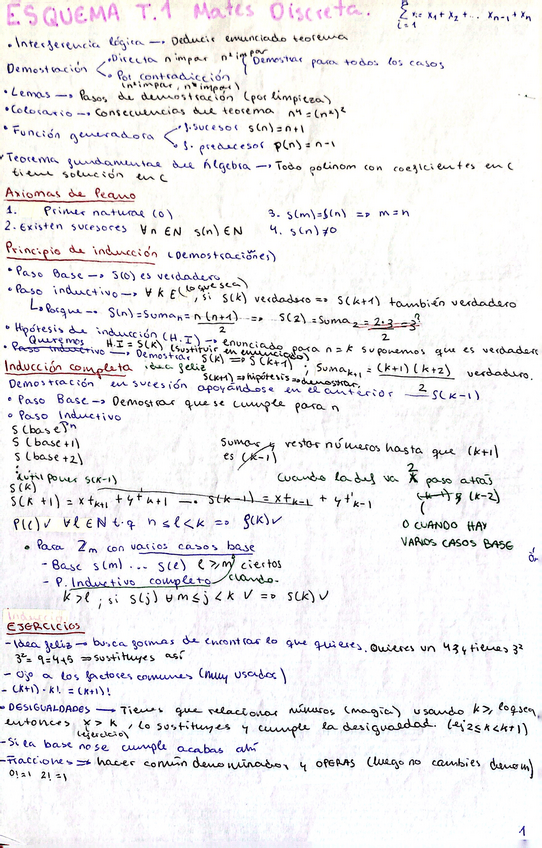 ESQUEMA T.1 Mates Discreta. Σ n = x1 + x2 + ... xn-1 + xn
i=1
• Interferencia lógica → Deducir enunciado teorema
Directa n impar n² impar
Demostración < } Demostrar para todos los casos
Por contradicción
(n² impar, n impar)
• Lemas → Pasos de demostración (por limpieza)
• Colorario → Consecuencias del teorema n⁴ = (n²)²
• Función generadora < f. sucesor s(n) = n+1
f. predecesor p(n) = n-1
• Teorema fundamental del Álgebra → Todo polinom con coeficientes en C
tiene solución en C
Axiomas de Peano
1. Primer natural (0) 3. s(m) = s(n) => m = n
2. Existen sucesores ∀n ∈ N s(n) ∈ N 4. s(n) ≠ 0
Principio de inducción (Demostraciones)
• Paso Base → S(0) es verdadero
• Paso inductivo → ∀ k ∈ (lo que sea), si S(k) verdadero => S(k+1) también verdadero
↳ Porque → S(n) = Suma n = n(n+1)/2 => S(2) = Suma 2 = 2·3/2 = 3
• Hipótesis de inducción (H.I) → enunciado para n=k suponemos que es verdadero
Queremos H.I = S(k) (sustituir en enunciado)
• Paso inductivo → Demostrar S(k) => S(k+1) ; Suma k+1 = (k+1)(k+2)/2 verdadero.
Inducción completa idea feliz S(k+1) => hipótesis => demostrar.
Demostración en sucesión apoyándose en el anterior → S(k-1)
• Paso Base → Demostrar que se cumple para n
• Paso Inductivo
S(base) n
S(base+1) Sumar y restar números hasta que (k+1)
S(base+2) es (k-1)
⋮
útil poner S(k-1) Cuando la def va 2 paso atrás
S(k) (k-1) y (k-2)
S(k+1) = x t k+1 + y t' k+1 → S(k-1) = x t k-1 + y t' k-1
P(l) ✓ ∀l ∈ N t.q n ≤ l < k => P(k) ✓ O CUANDO HAY
VARIOS CASOS BASE
• Para Z m con varios casos base
- Base s(m) ... s(l) l ≥ m ciertos
- P. Inductivo completo cuando.
k > l ; si S(j) ∀ m ≤ j < k ✓ => S(k) ✓
EJERCICIOS
- Idea feliz → busca formas de encontrar lo que quieres. Quieres un 4 3 y tienes 3²
3² = 9 = 4+5 => sustituyes así
- Ojo a los factores comunes (muy usados)
- (k+1) · k! = (k+1)!
• DESIGUALDADES → Tienes que relacionar números (magia) usando k ≥ lo q sea,
entonces x > k, lo sustituyes y cumple la desigualdad. (ej 2 ≤ k < k+1)
(ejercicio)
- Si la base no se cumple acabas ahí
- Fracciones → hacer común denominador y OPERAS (luego no cambies denom)
0! = 1 2! = 1
1